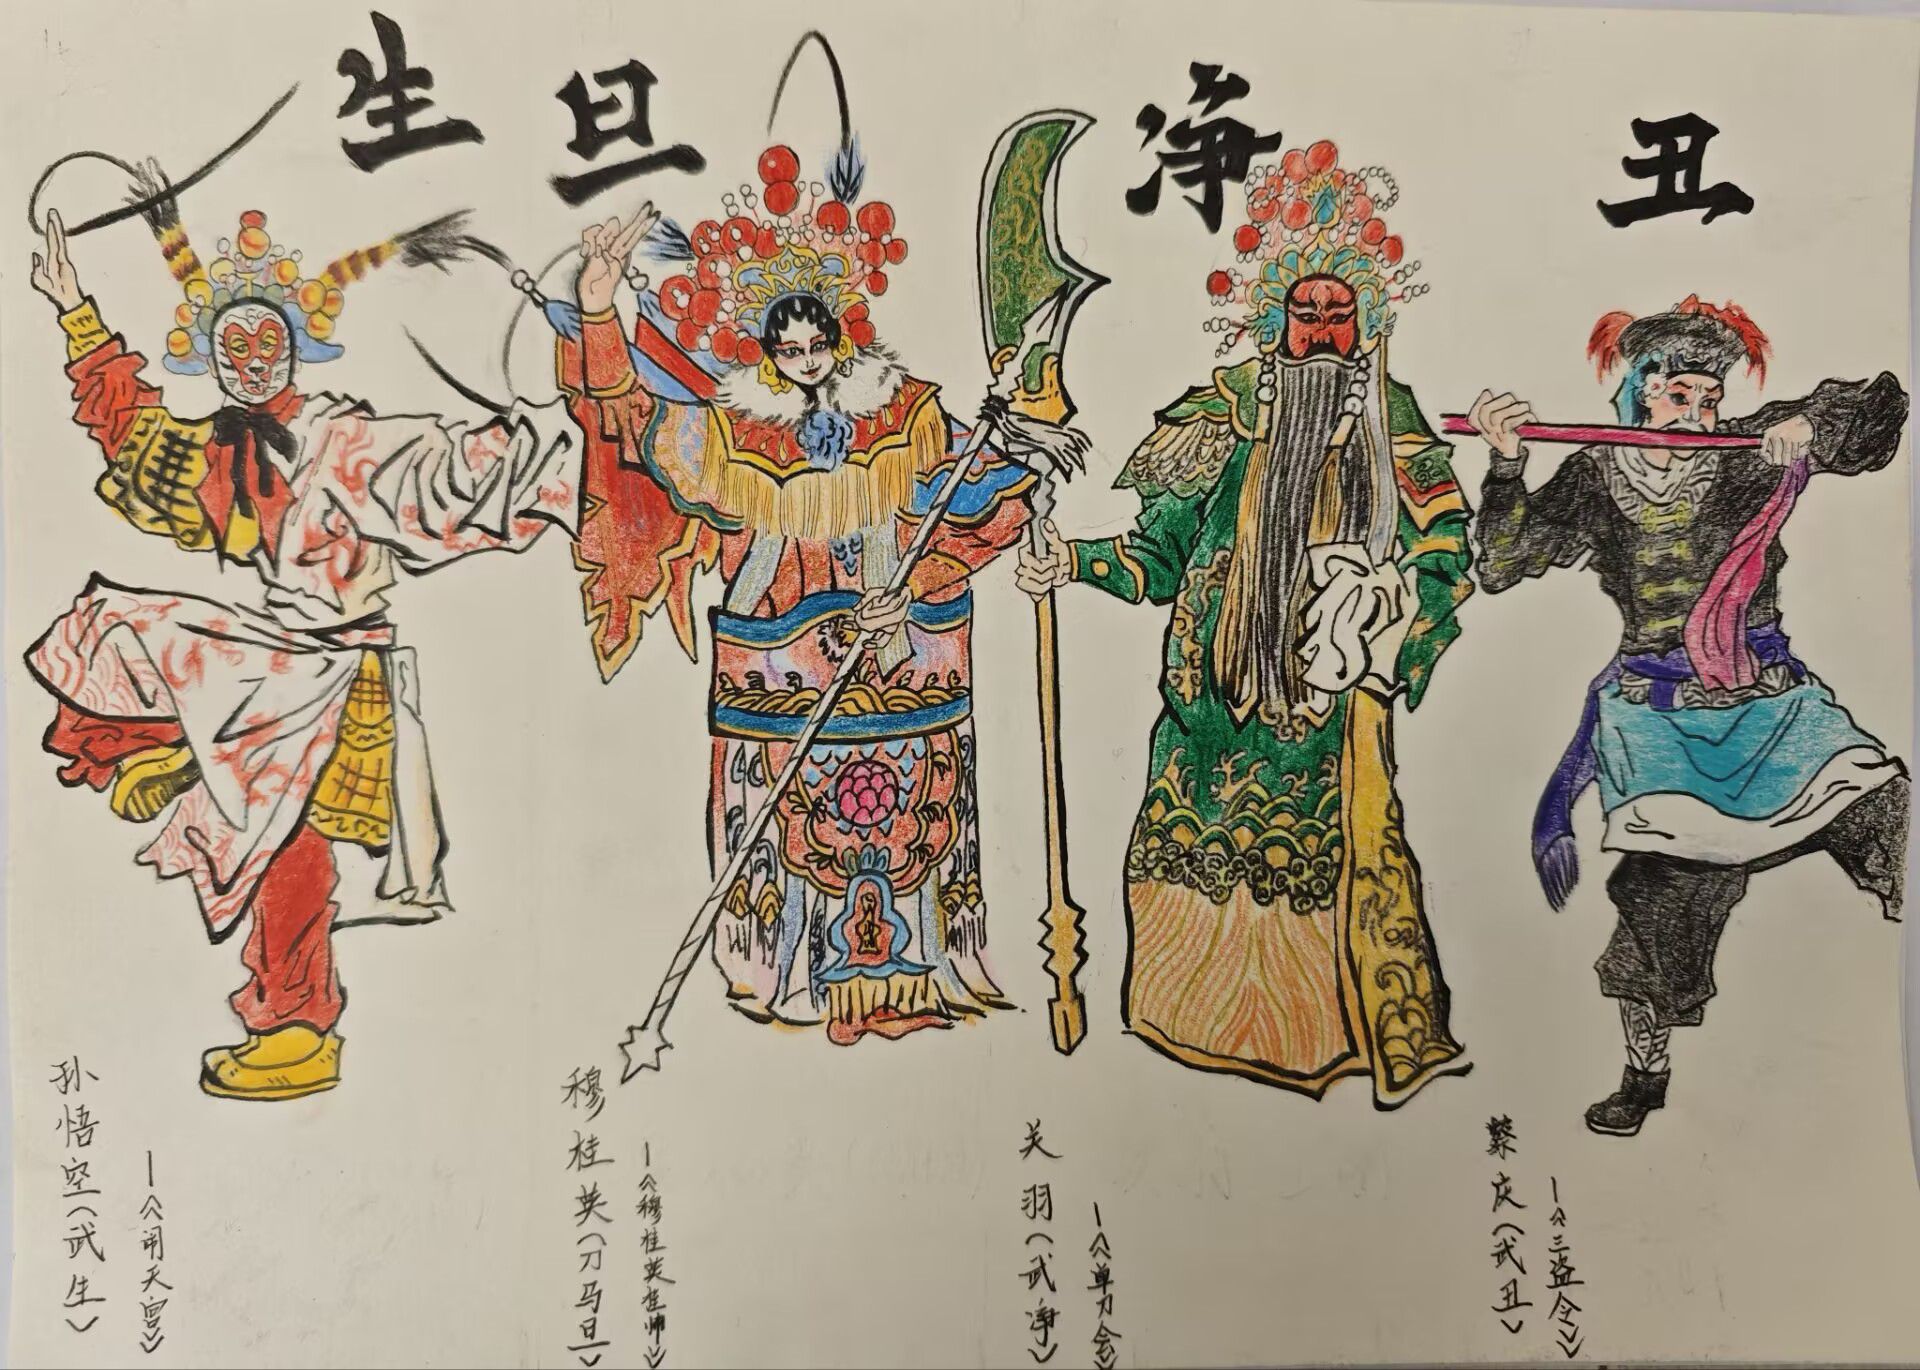 生
旦
净
丑
孙悟空(武生)
—《闹天宫》
穆桂英(刀马旦)
—《穆桂英挂帅》
关羽(武净)
—《单刀会》
蔡庆(武丑)
—《三盗令》